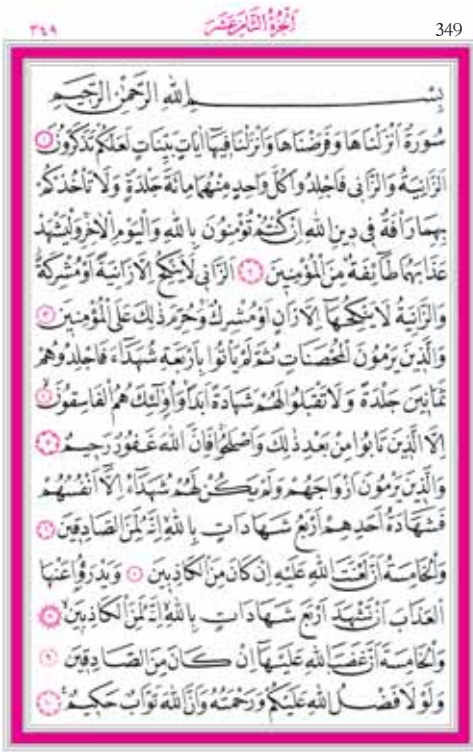 ٣٤٩ اَلْجُزْءُ الثَّامِنَ عَشَرَ 349
بِسْمِ اللهِ الرَّحْمٰنِ الرَّحِيمِ
سُورَةٌ اَنْزَلْنَاهَا وَفَرَضْنَاهَا وَاَنْزَلْنَا فِيهَا اٰيَاتٍ بَيِّنَاتٍ لَعَلَّكُمْ تَذَكَّرُونَ ١
اَلزَّانِيَةُ وَالزَّانِي فَاجْلِدُوا كُلَّ وَاحِدٍ مِنْهُمَا مِائَةَ جَلْدَةٍ وَلَا تَأْخُذْكُمْ
بِهِمَا رَأْفَةٌ فِي دِينِ اللهِ اِنْ كُنْتُمْ تُؤْمِنُونَ بِاللهِ وَالْيَوْمِ الْاٰخِرِ وَلْيَشْهَدْ
عَذَابَهُمَا طَائِفَةٌ مِنَ الْمُؤْمِنِينَ ٢ اَلزَّانِي لَا يَنْكِحُ اِلَّا زَانِيَةً اَوْ مُشْرِكَةً
وَالزَّانِيَةُ لَا يَنْكِحُهَا اِلَّا زَانٍ اَوْ مُشْرِكٌ وَحُرِّمَ ذٰلِكَ عَلَى الْمُؤْمِنِينَ ٣
وَالَّذِينَ يَرْمُونَ الْمُحْصَنَاتِ ثُمَّ لَمْ يَأْتُوا بِاَرْبَعَةِ شُهَدَاءَ فَاجْلِدُوهُمْ
ثَمَانِينَ جَلْدَةً وَلَا تَقْبَلُوا لَهُمْ شَهَادَةً اَبَدًا وَاُولٰئِكَ هُمُ الْفَاسِقُونَ ٤
اِلَّا الَّذِينَ تَابُوا مِنْ بَعْدِ ذٰلِكَ وَاَصْلَحُوا فَاِنَّ اللهَ غَفُورٌ رَحِيمٌ ٥
وَالَّذِينَ يَرْمُونَ اَزْوَاجَهُمْ وَلَمْ يَكُنْ لَهُمْ شُهَدَاءُ اِلَّا اَنْفُسُهُمْ
فَشَهَادَةُ اَحَدِهِمْ اَرْبَعُ شَهَادَاتٍ بِاللهِ اِنَّهُ لَمِنَ الصَّادِقِينَ ٦
وَالْخَامِسَةُ اَنَّ لَعْنَتَ اللهِ عَلَيْهِ اِنْ كَانَ مِنَ الْكَاذِبِينَ ٧ وَيَدْرَؤُا عَنْهَا
الْعَذَابَ اَنْ تَشْهَدَ اَرْبَعَ شَهَادَاتٍ بِاللهِ اِنَّهُ لَمِنَ الْكَاذِبِينَ ٨
وَالْخَامِسَةَ اَنَّ غَضَبَ اللهِ عَلَيْهَا اِنْ كَانَ مِنَ الصَّادِقِينَ ٩
وَلَوْلَا فَضْلُ اللهِ عَلَيْكُمْ وَرَحْمَتُهُ وَاَنَّ اللهَ تَوَّابٌ حَكِيمٌ ١٠